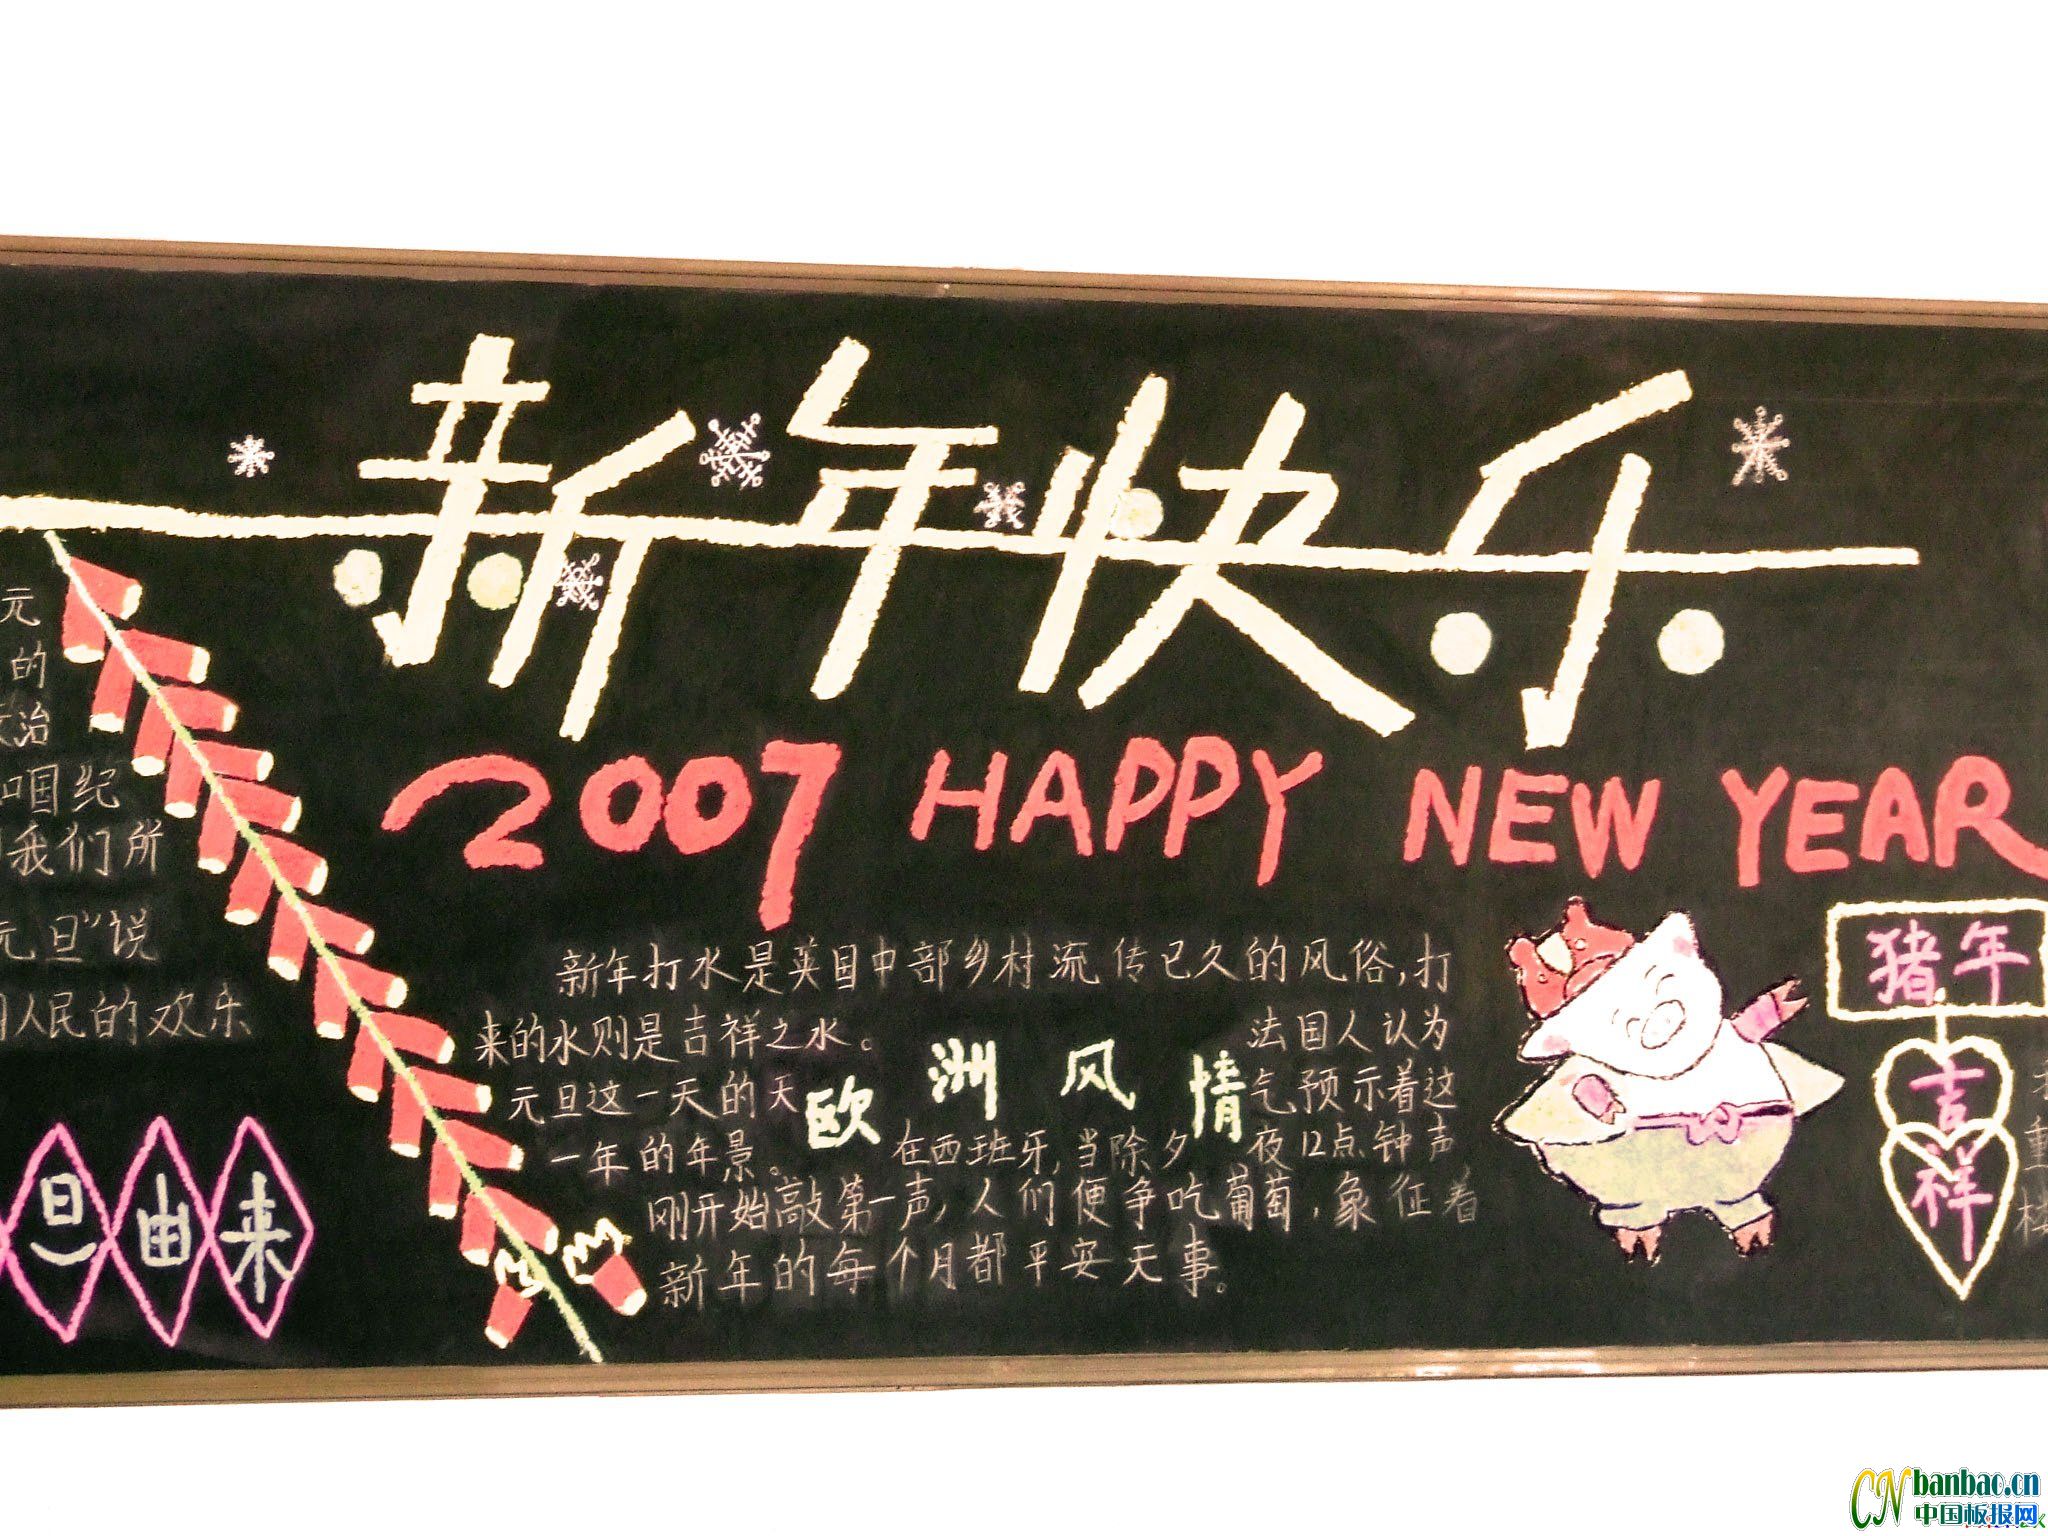 新年快乐
2007 HAPPY NEW YEAR
元
的
治
国纪
我们所
元旦"说
人民的欢乐
旦由来
新年打水是英国中部乡村流传已久的风俗,打
来的水则是吉祥之水。
欧洲风情
法国人认为
元旦这一天的天
气预示着这
一年的年景。
在西班牙,当除夕
夜12点钟声
刚开始敲第一声,人们便争吃葡萄,象征着
新年的每个月都平安天事。
猪年
吉
祥
重
楼
CN banbao.cn
中国板报网